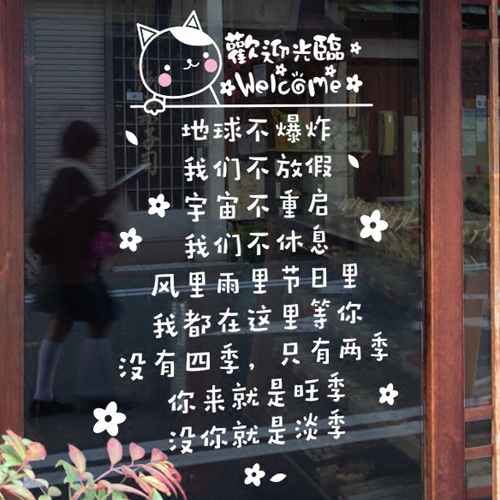 歡迎光臨
Welcome
地球不爆炸
我们不放假
宇宙不重启
我们不休息
风里雨里节日里
我都在这里等你
没有四季，只有两季
你来就是旺季
没你就是淡季